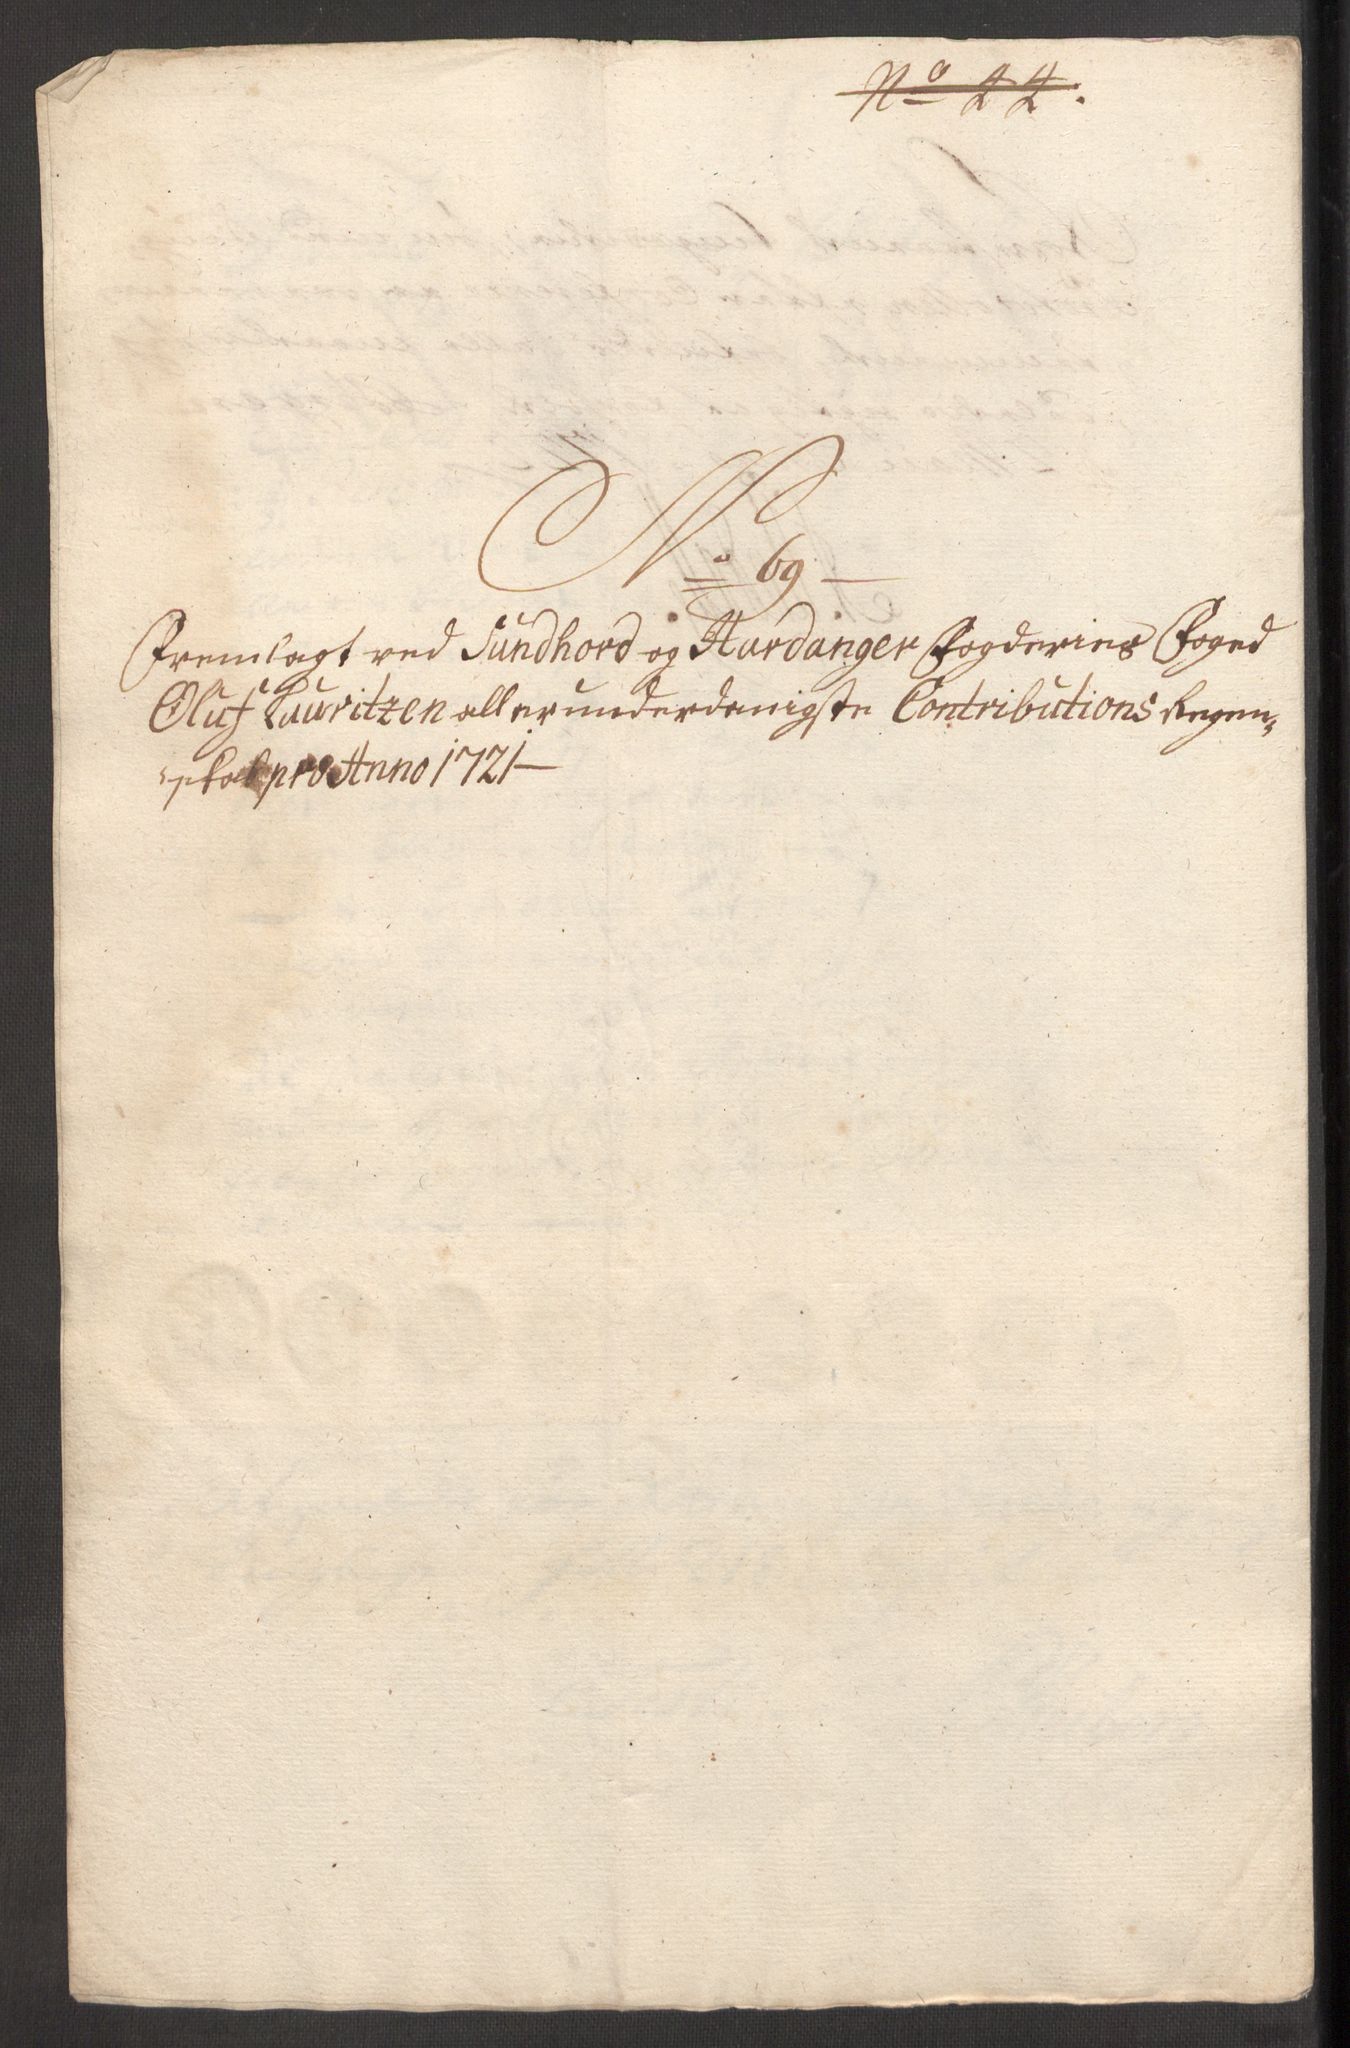 No 44.
No 69
Fremlagt ved Sundhord og Hardanger Fogderies Foged
Oluf Lauritzen allerunderdanigste Contributions Regen-
skab pro Anno 1721